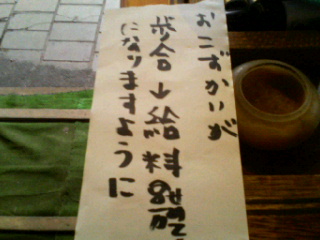 おこずかいが
歩合→給料
になりますように